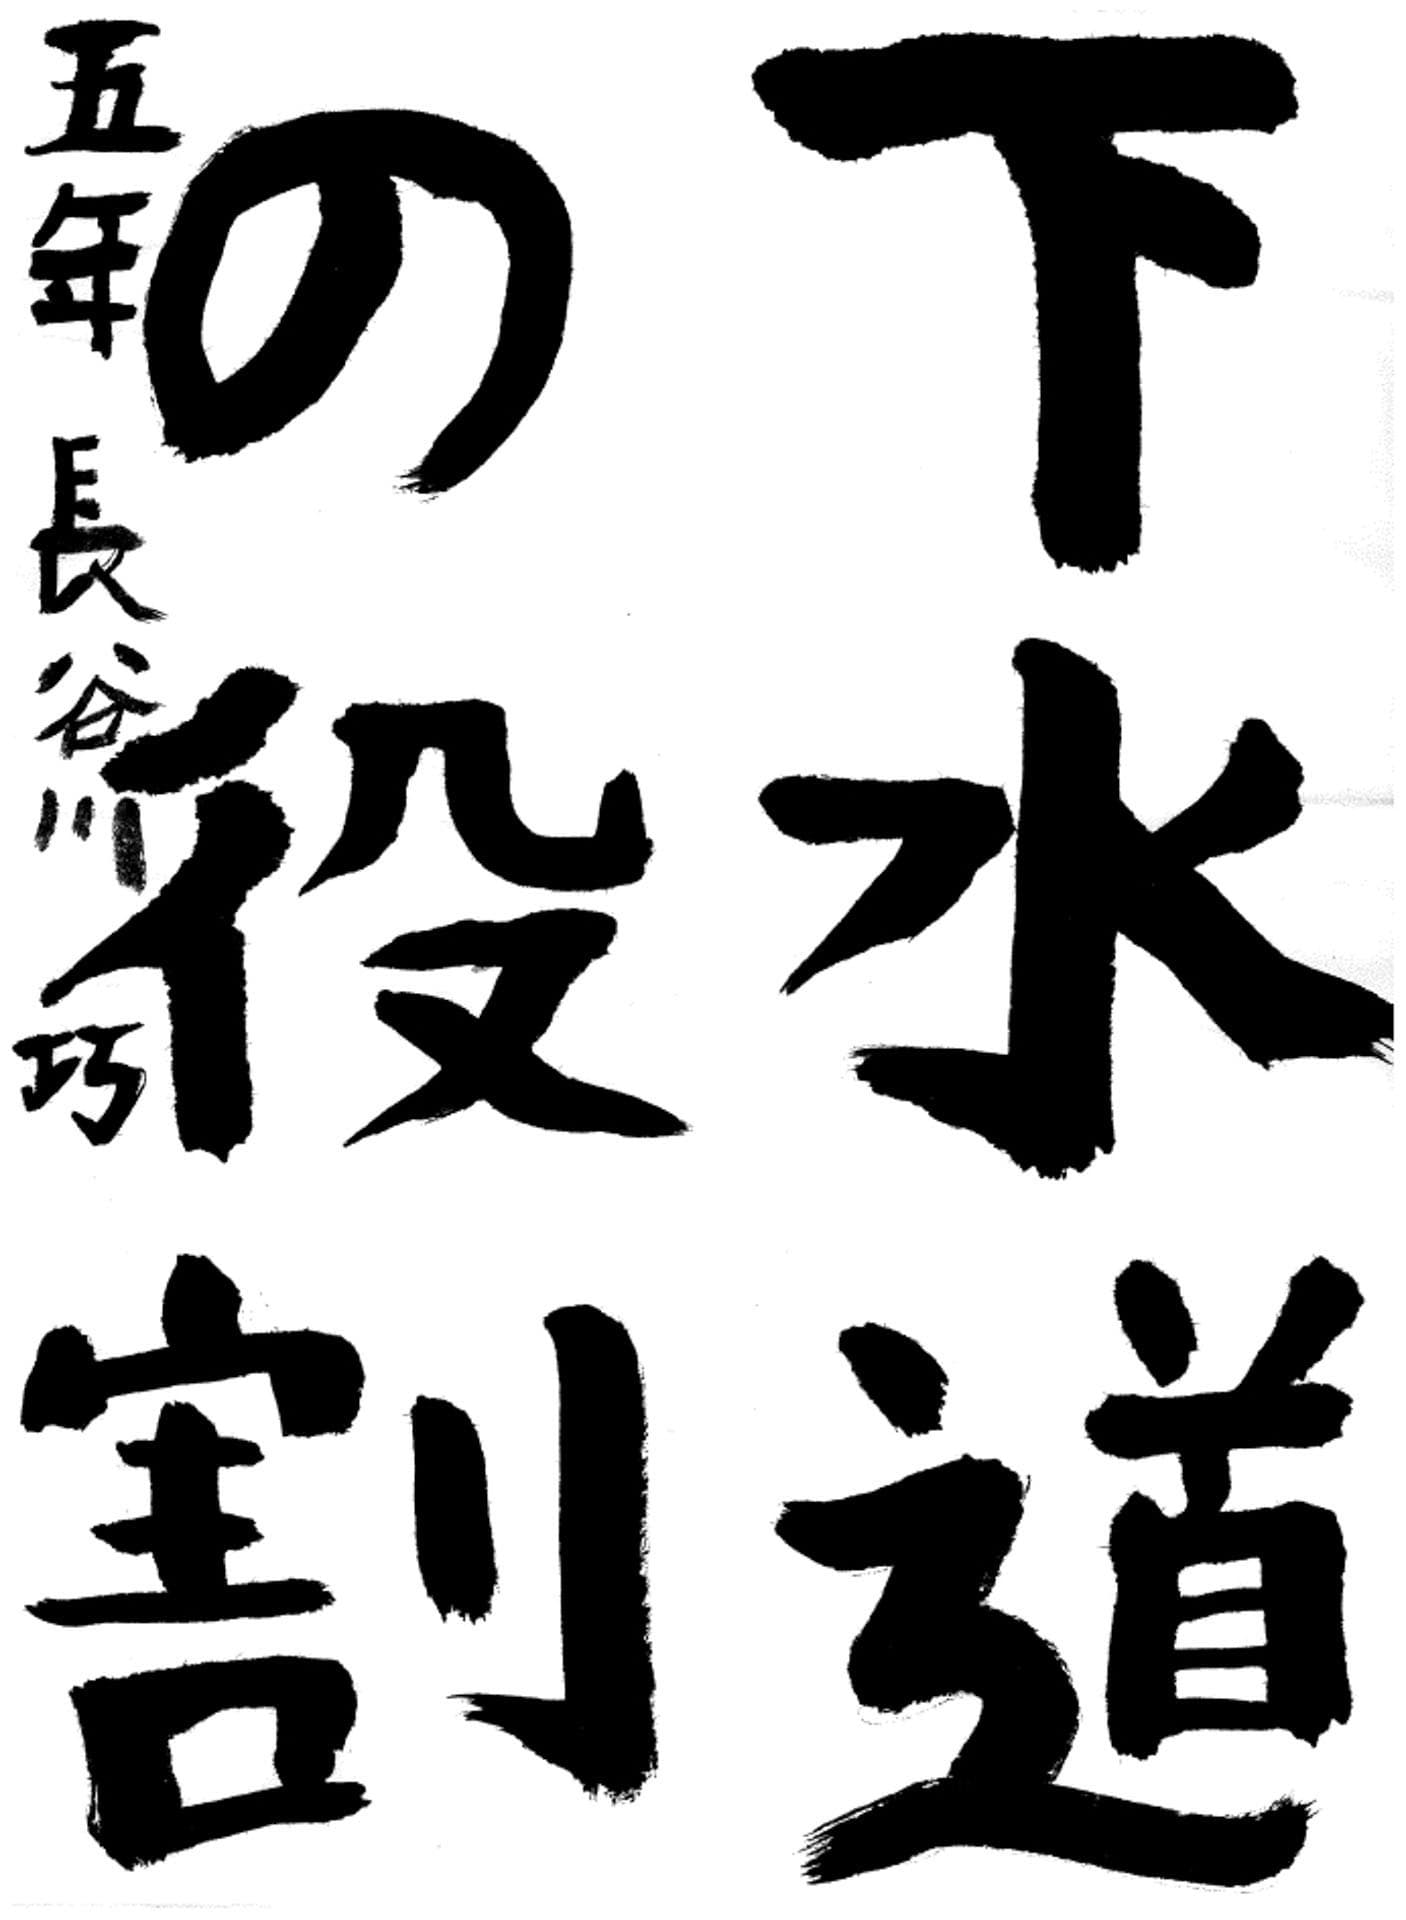 下水道
の役割
五年 長谷川巧